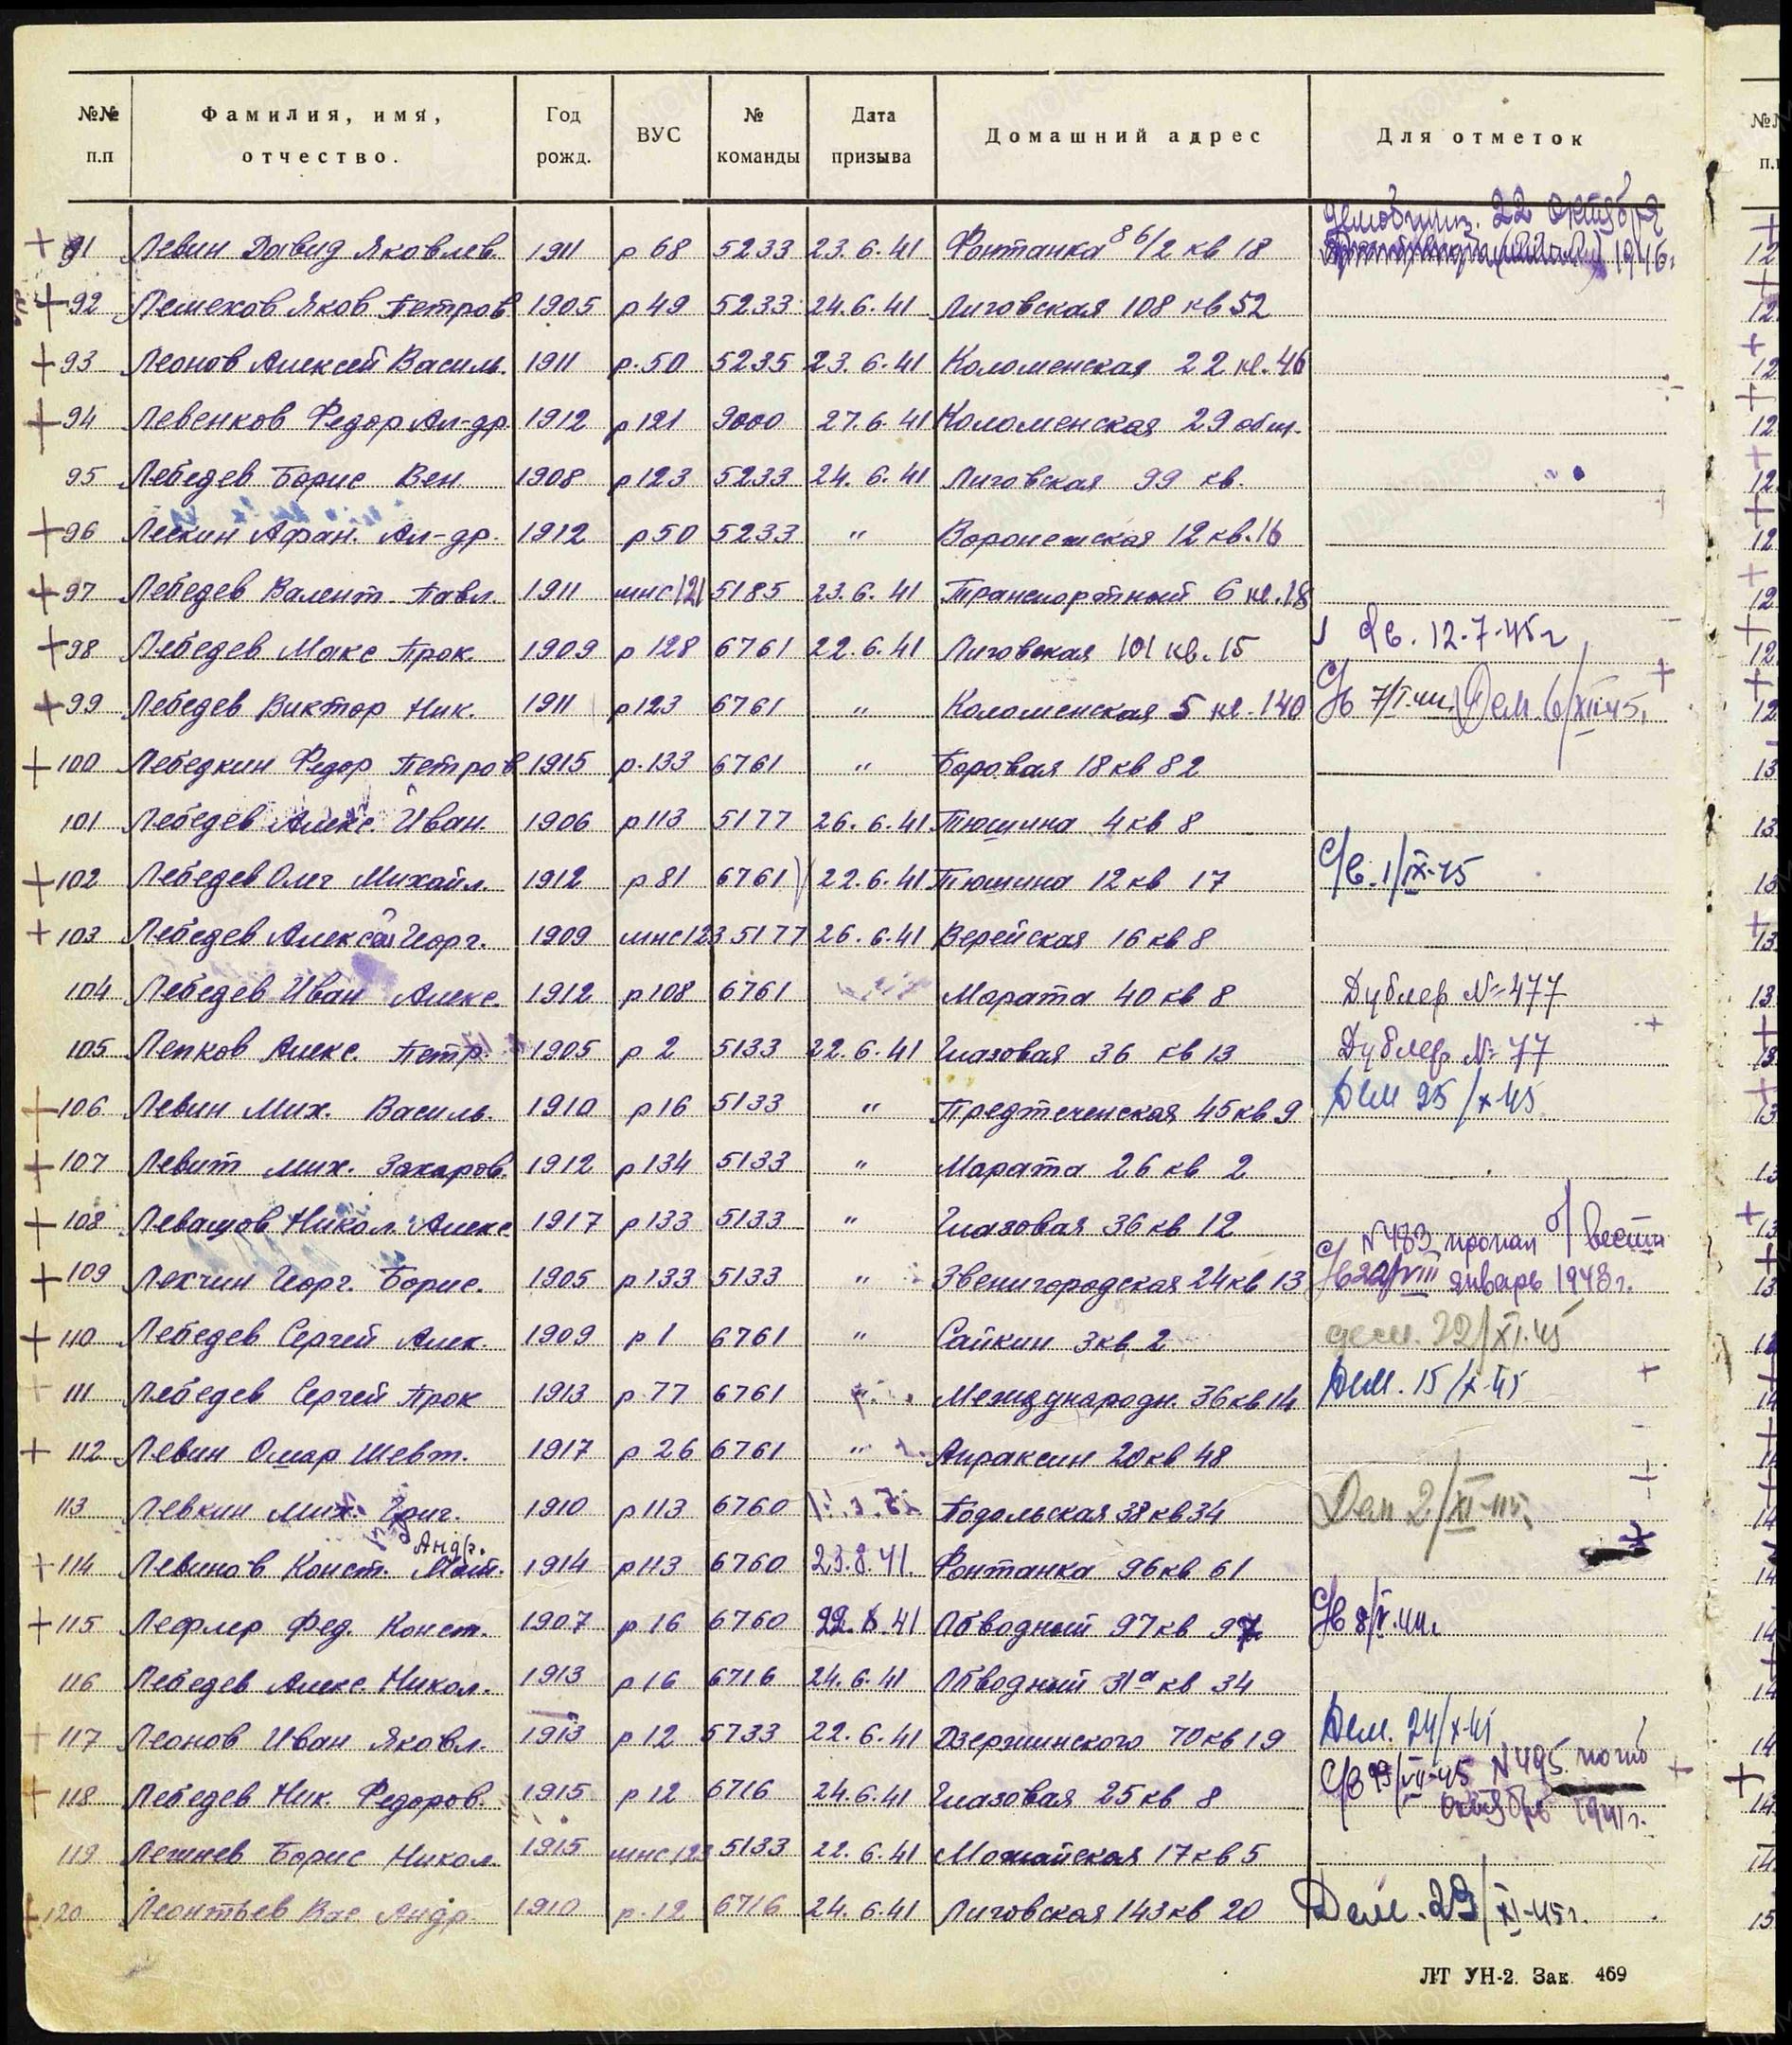 №№ п.п Фамилия, имя, отчество. Год рожд. ВУС № команды Дата призыва Домашний адрес Для отметок
22 октября
91 Левин Давид Яковлев. 1911 р 68 5233 23.6.41 Фонтанка 86/2 кв 18 1946г.
92 Лемехов Яков Петров 1905 р 49 5233 24.6.41 Лиговская 108 кв 52
93 Леонов Алексей Василь. 1911 р.50 5235 23.6.41 Коломенская 22 кв.46
94 Левенков Федор Ал-др 1912 р 121 9000 27.6.41 Коломенская 29 общ.
95 Лебедев Борис Вен 1908 р 123 5233 24.6.41 Лиговская 99 кв.
96 Лескин Афан. Ал-др. 1912 р 50 5233 " Воронежская 12 кв.16
97 Лебедев Валент. Павл. 1911 мнс 121 5185 23.6.41 Транспортный 6 кв.18
98 Лебедев Макс Прок. 1909 р 128 6761 22.6.41 Лиговская 101 кв.15 12.7.45г
99 Лебедев Виктор Ник. 1911 р 123 6761 " Коломенская 5 кв.140 Дем. 6/XII 45.
100 Лебедкин Федор Петров 1915 р.133 6761 " Боровая 18 кв 82
101 Лебедев Алекс. Иван. 1906 р 113 5177 26.6.41 Тюшина 4 кв 8
102 Лебедев Олег Михайл. 1912 р 81 6761 22.6.41 Тюшина 12 кв 17 С/в. 1/IX-45
103 Лебедев Алексей Георг. 1909 мнс 123 5177 26.6.41 Верейская 16 кв 8
104 Лебедев Иван Алекс. 1912 р 108 6761 Марата 40 кв 8 Дублер №477
105 Лепков Алекс. Петр. 1905 р 2 5133 22.6.41 Глазовая 36 кв 13 Дублер №77
106 Левин Мих. Василь. 1910 р 16 5133 " Предтеченская 45 кв 9 Дем 25/X-45
107 Левит Мих. Захаров. 1912 р 134 5133 " Марата 26 кв 2
108 Левашов Никол. Алекс 1917 р 133 5133 " Глазовая 36 кв 12
N 483 пропал б/вести
109 Лекчин Георг. Борис. 1905 р 133 5133 " Звенигородская 24 кв 13 январь 1943г.
110 Лебедев Сергей Алек. 1909 р 1 6761 " Сайкин 3 кв 2 дем. 22/XI.45
111 Лебедев Сергей Прок 1913 р 77 6761 " Международн. 36 кв 14 Дем. 15/X-45
112 Левин Омар Шевт. 1917 р 26 6761 " Апраксин 20 кв 48
113 Левкин Мих. Григ. 1910 р 113 6760 Подольская 38 кв 34 Дем 2/XI-45
Андр.
114 Левинов Конст. 1914 р 113 6760 23.8.41. Фонтанка 96 кв 61
115 Лефлер Фед. Конст. 1907 р 16 6760 22.8.41 Обводный 97 кв 97 С/в 8/V.44г
116 Лебедев Алекс Никол. 1913 р 16 6716 24.6.41 Обводный 31а кв 34
117 Леонов Иван Яковл. 1913 р 12 5733 22.6.41 Дзержинского 70 кв 19 Дем. 24/X-45
118 Лебедев Ник. Федоров. 1915 р 12 6716 24.6.41 Глазовая 25 кв 8 N 495 погиб
октябрь 1941г.
119 Лежнев Борис Никол. 1915 мнс 123 5133 22.6.41 Можайская 17 кв 5
120 Леонтьев Вас. Андр. 1910 р.12 6716 24.6.41 Лиговская 143 кв 20 Дем. 29/XI-45г.
ЛТ УН-2. Зак. 469